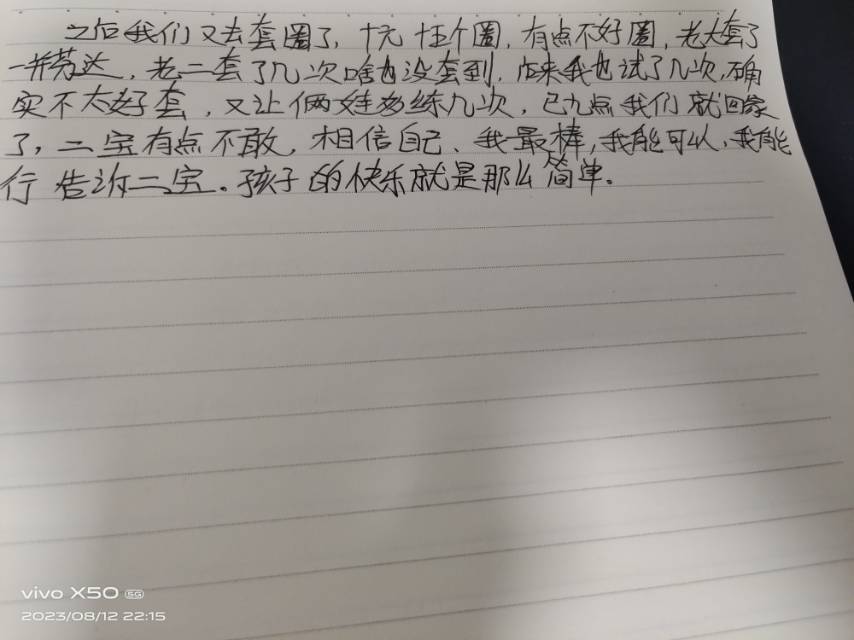 之后我们又去套圈了，十元 个圈，有点不好圈，老大套了
一并芬达，老二套了几次啥也没套到，后来我也试了几次，确
实不太好套，又让俩娃多练几次，已九点我们就回家
了，二宝有点不敢，相信自己、我最棒，我能可以，我能
行 告诉二宝。孩子的快乐就是那么简单。
vivo X50 5G
2023/08/12 22:15